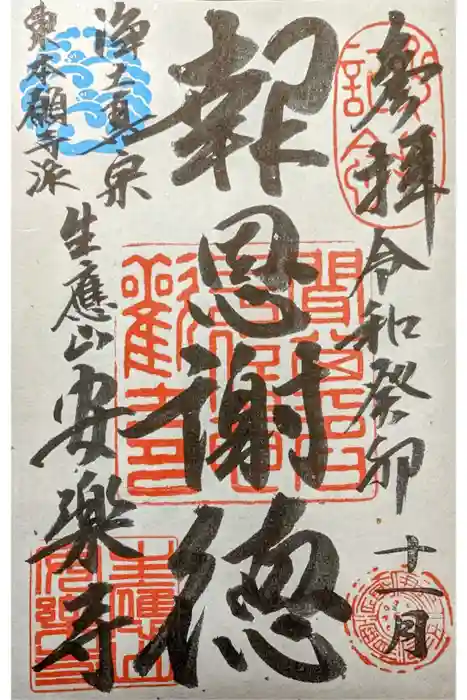 参拝
令和癸卯
十一月
報恩謝徳
浄土真宗
東本願寺派
生應山
安楽寺